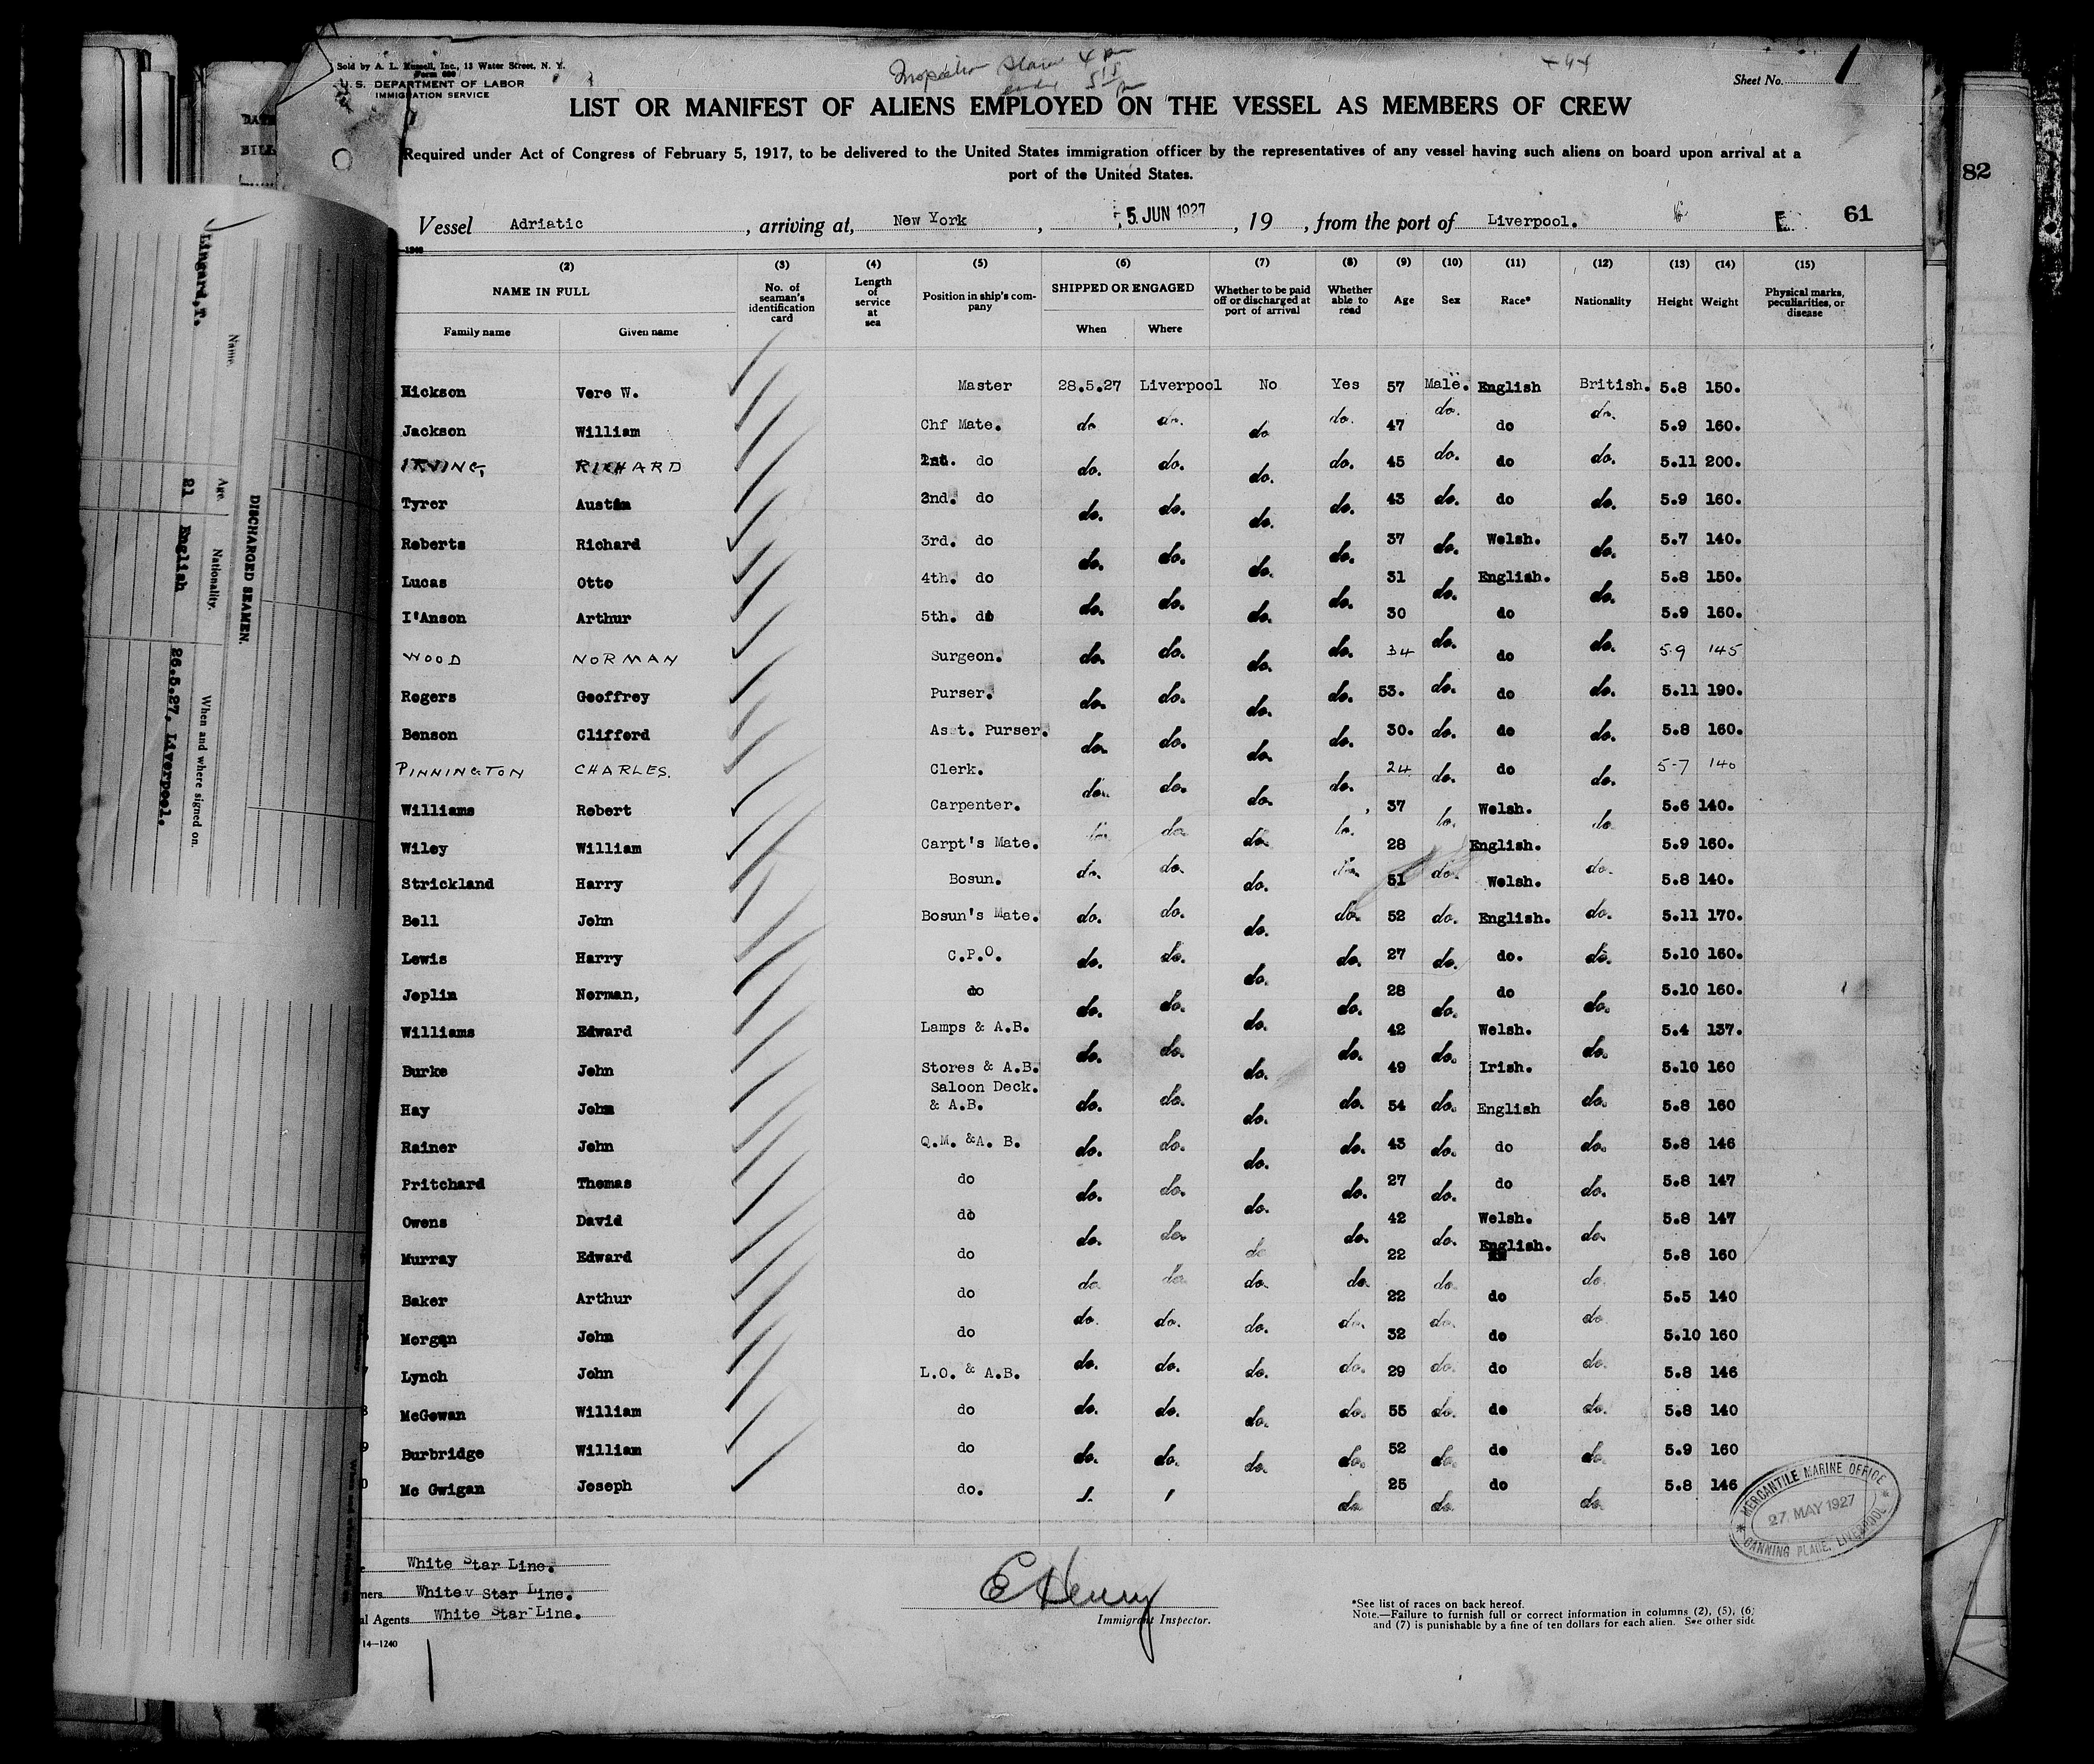 Sold by A. L. Russell, Inc., 13 Water Street, N. Y.
Form 680
U. S. DEPARTMENT OF LABOR
IMMIGRATION SERVICE
Sheet No. 1
LIST OR MANIFEST OF ALIENS EMPLOYED ON THE VESSEL AS MEMBERS OF CREW
Required under Act of Congress of February 5, 1917, to be delivered to the United States immigration officer by the representatives of any vessel having such aliens on board upon arrival at a
port of the United States.
Vessel Adriatic, arriving at, New York, 5 JUN 1927, 19, from the port of Liverpool. E. 61
82
(2) (3) (4) (5) (6) (7) (8) (9) (10) (11) (12) (13) (14) (15)
NAME IN FULL
Family name Given name
No. of seaman's identification card
Length of service at sea
Position in ship's company
SHIPPED OR ENGAGED
When Where
Whether to be paid off or discharged at port of arrival
Whether able to read
Age Sex Race* Nationality Height Weight
Physical marks, peculiarities, or disease
Hickson Vere W. Master 28.5.27 Liverpool No Yes 57 Male. English British. 5.8 150.
Jackson William Chf Mate. do do. do do. 47 do. do do. 5.9 160.
IRVING RICHARD do do. do. do. do. 45 do. do do. 5.11 200.
Tyrer Austin 2nd. do do. do. do. do. 43 do. do do. 5.9 160.
Roberts Richard 3rd. do do. do. do. do. 37 do. Welsh. do. 5.7 140.
Lucas Otto 4th. do do. do. do. do. 31 do. English. do. 5.8 150.
I'Anson Arthur 5th. do do. do. do. do. 30 do. do do. 5.9 160.
WOOD NORMAN Surgeon. do. do. do. do. 34 do. do do. 5.9 145
Rogers Geoffrey Purser. do. do. do. do. 53. do. do do. 5.11 190.
Benson Clifford Asst. Purser. do. do. do. do. 30. do. do do. 5.8 160.
PINNINGTON CHARLES. Clerk. do. do. do. do. 24 do. do do. 5-7 140
Williams Robert Carpenter. do. do. do. do. 37 do. Welsh. do. 5.6 140.
Wiley William Carpt's Mate. do. do. do. do. 28 do. English. do. 5.9 160.
Strickland Harry Bosun. do. do. do. do. 51 do. Welsh. do. 5.8 140.
Bell John Bosun's Mate. do. do. do. do. 52 do. English. do. 5.11 170.
Lewis Harry C.P.O. do. do. do. do. 27 do. do. do. 5.10 160.
Joplin Norman, do do. do. do. do. 28 do. do do. 5.10 160.
Williams Edward Lamps & A.B. do. do. do. do. 42 do. Welsh. do. 5.4 137.
Burke John Stores & A.B. do. do. do. do. 49 do. Irish. do. 5.10 160
Hay John Saloon Deck. & A.B. do. do. do. do. 54 do. English do. 5.8 160
Rainer John Q.M. &A. B. do. do. do. do. 43 do. do do. 5.8 146
Pritchard Thomas do do. do. do. do. 27 do. do do. 5.8 147
Owens David do do. do. do. do. 42 do. Welsh. do. 5.8 147
Murray Edward do do. do. do. do. 22 do. English. do. 5.8 160
Baker Arthur do do. do. do. do. 22 do. do do. 5.5 140
Morgan John do do. do. do. do. 32 do. do do. 5.10 160
Lynch John L.O. & A.B. do. do. do. do. 29 do. do do. 5.8 146
McGowan William do do. do. do. do. 55 do. do do. 5.8 140
Burbridge William do do. do. do. do. 52 do. do do. 5.9 160
Mc Gwigan Joseph do. do. 25 do. do do. 5.8 146
MERCANTILE MARINE OFFICE
27 MAY 1927
CANNING PLACE, LIVERPOOL
White Star Line.
Whitev Star Line.
Agents White Star Line.
14—1240
E Henry
Immigrant Inspector.
*See list of races on back hereof.
Note.—Failure to furnish full or correct information in columns (2), (5), (6)
and (7) is punishable by a fine of ten dollars for each alien. See other side
DISCHARGED SEAMEN.
Name. Age. Nationality. When and where signed on.
Lingard,T. 21 English 26.5.27. Liverpool.